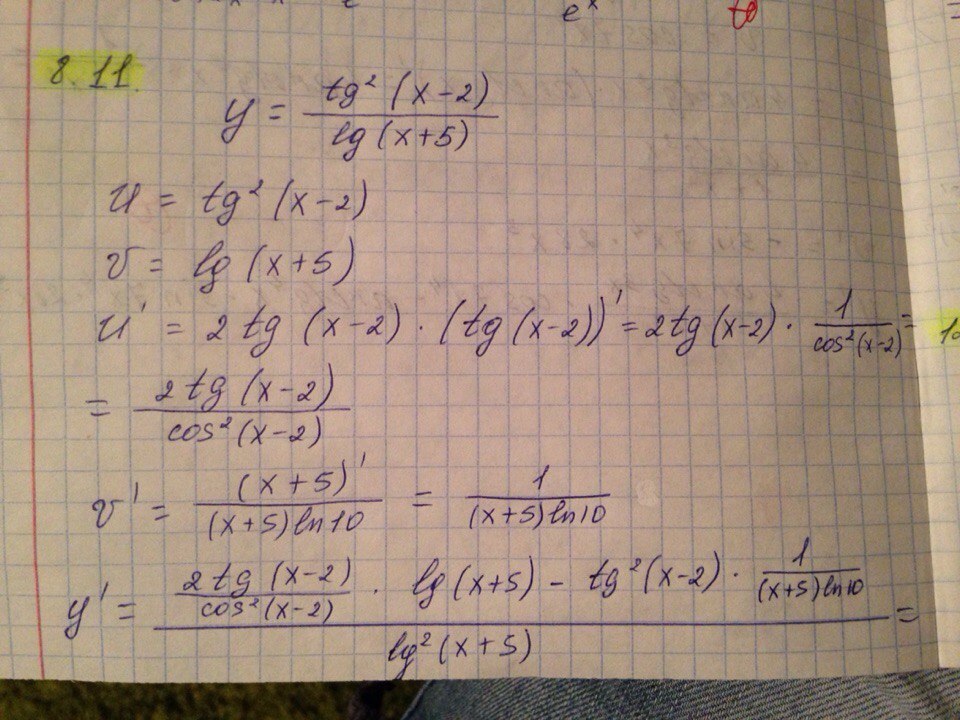 e^x
8.11.
y = \frac{tg² (x-2)}{lg (x+5)}
u = tg² (x-2)
v = lg (x+5)
u' = 2 tg (x-2) · (tg (x-2))' = 2 tg (x-2) · \frac{1}{cos² (x-2)} =
= \frac{2 tg (x-2)}{cos² (x-2)}
v' = \frac{(x+5)'}{(x+5) ln 10} = \frac{1}{(x+5) ln 10}
y' = \frac{\frac{2 tg (x-2)}{cos² (x-2)} · lg (x+5) - tg² (x-2) · \frac{1}{(x+5) ln 10}}{lg² (x+5)} =